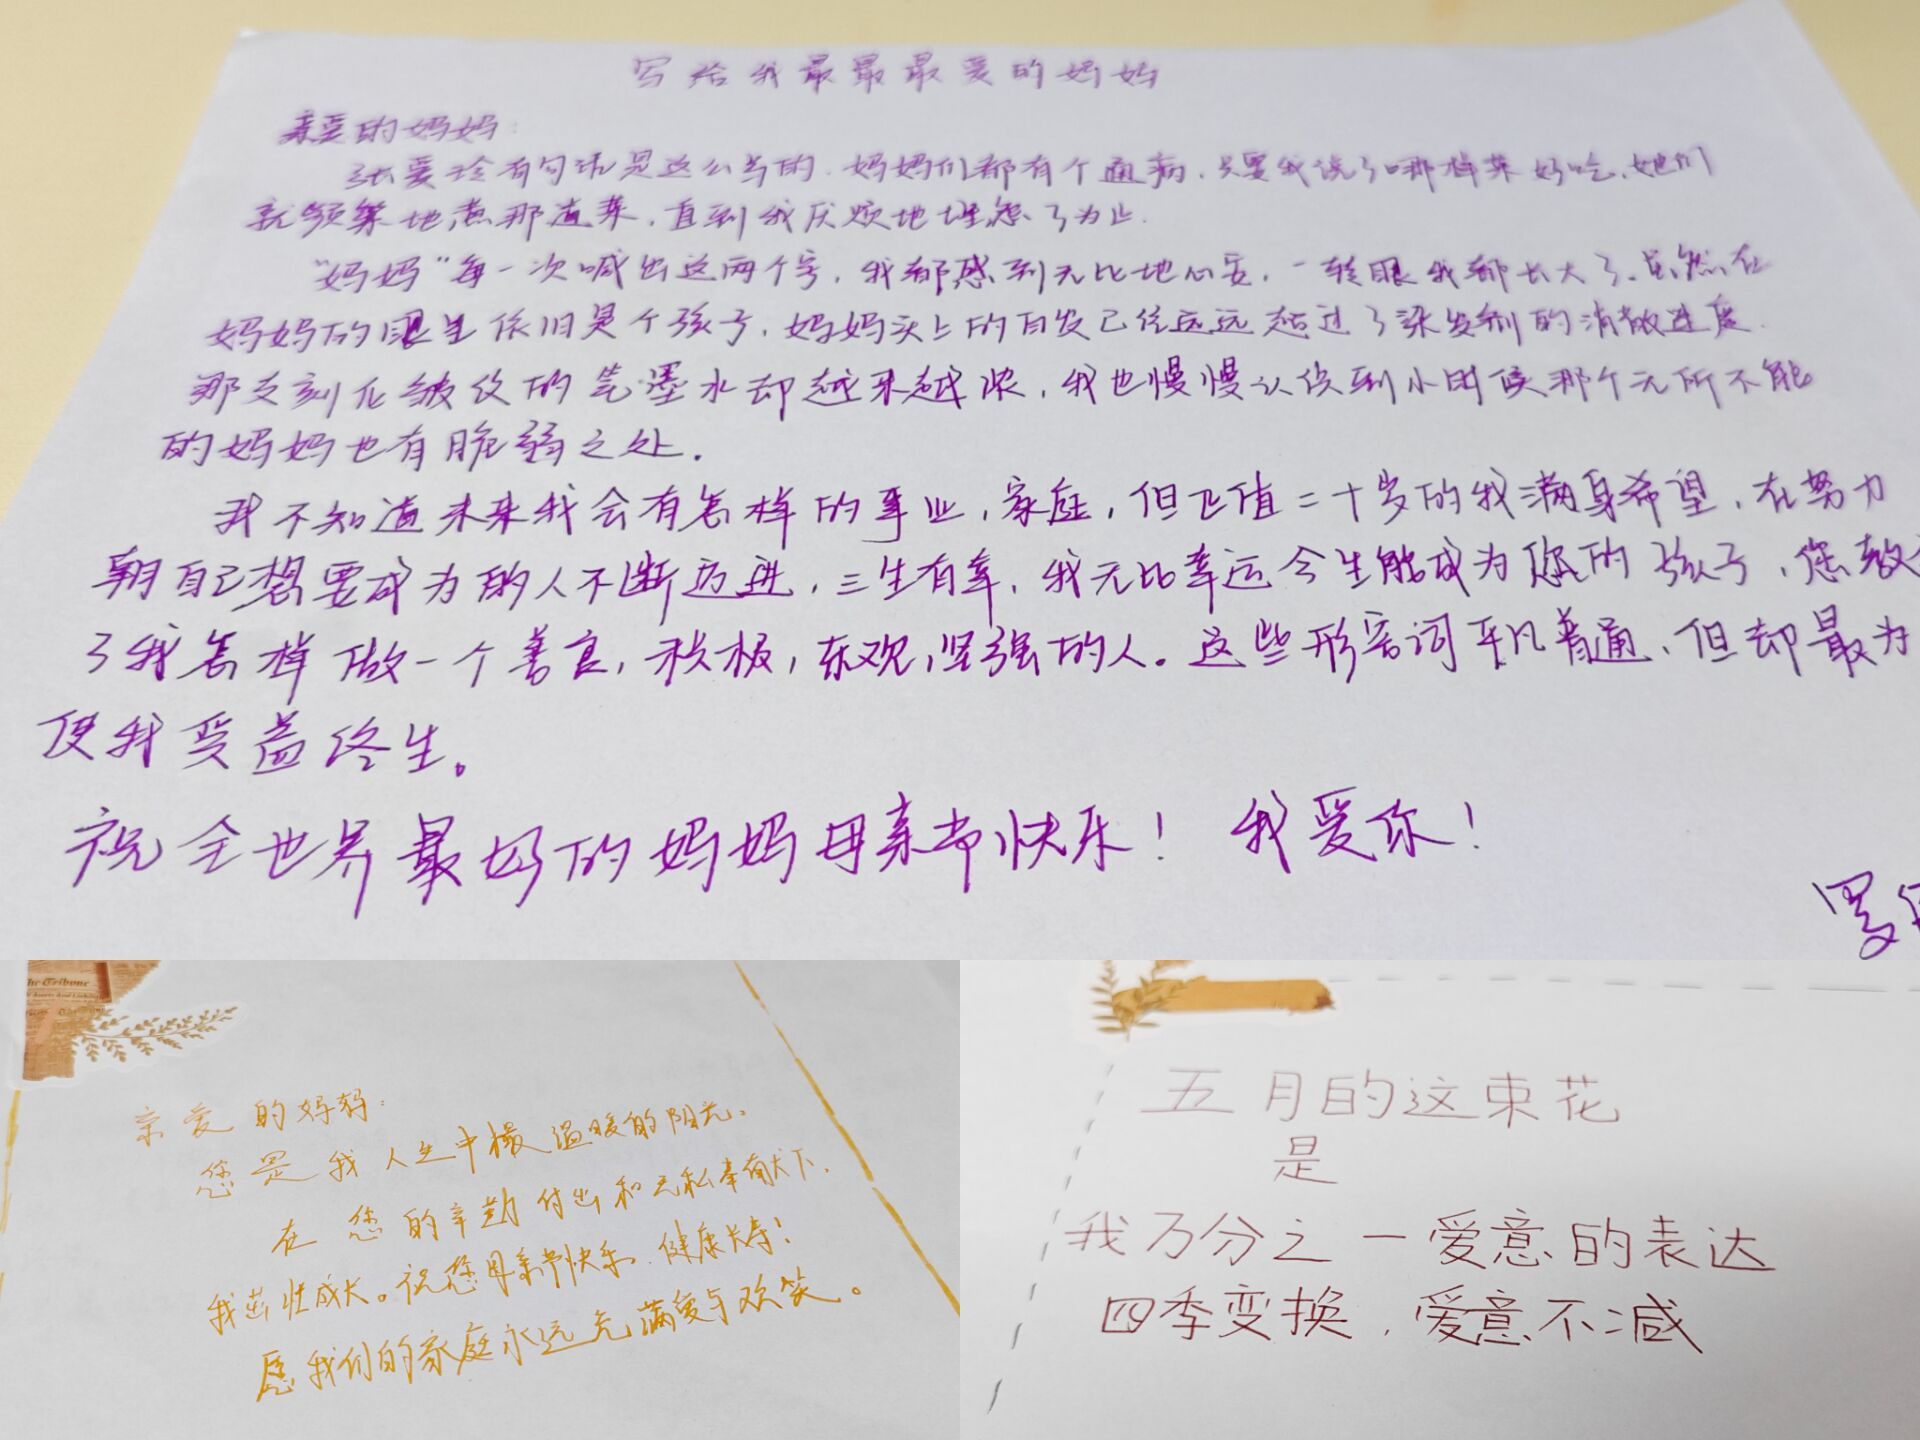 写给我最最最爱的妈妈
亲爱的妈妈:
张爱玲有句话是这么写的,妈妈们都有个通病,只要我说了哪样菜好吃,她们
就频繁地煮那道菜,直到我厌烦地埋怨了为止.
“妈妈”每一次喊出这两个字,我都感到无比地心安,一转眼我都长大了.虽然在
妈妈的眼里依旧是个孩子,妈妈头上的白发已经远远超过了染发剂的消散速度.
那支刻化皱纹的笔墨水却越来越浓,我也慢慢认识到小时候那个无所不能
的妈妈也有脆弱之处.
我不知道未来我会有怎样的事业,家庭,但正值二十岁的我满身希望,在努力
朝自己想要成为的人不断迈进,三生有幸,我无比幸运今生能成为您的孩子,您教
了我怎样做一个善良,积极,乐观,坚强的人。这些形容词平凡普通,但却最为
使我受益终生。
祝全世界最好的妈妈母亲节快乐!我爱你!
罗
The Tribune
亲爱的妈妈:
您是我人生中最温暖的阳光。
在您的辛勤付出和无私奉献下,
我茁壮成长。祝您母亲节快乐,健康长寿!
愿我们的家庭永远充满爱与欢笑。
五月的这束花
是
我万分之一爱意的表达
四季变换,爱意不减